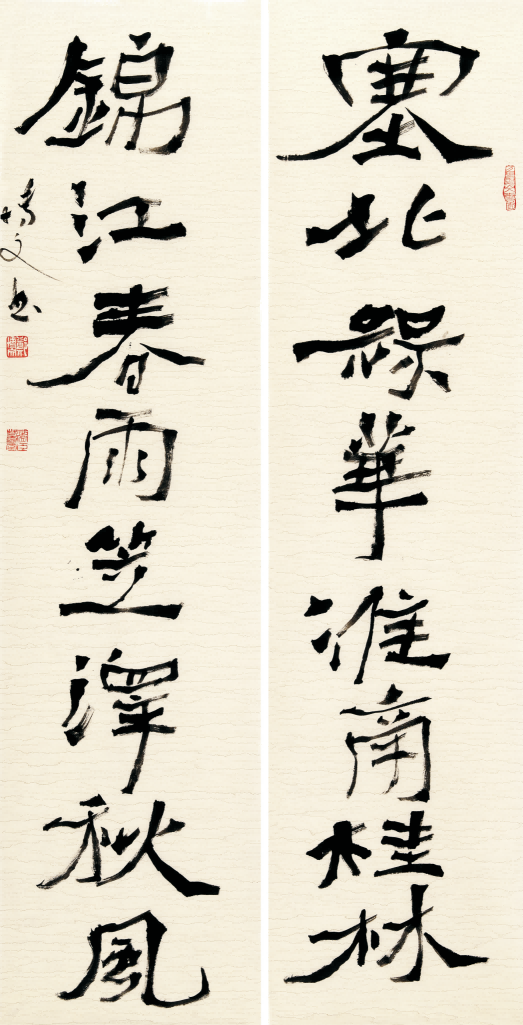 塞北華淮南桂林
錦江春雨笠澤秋風
文书